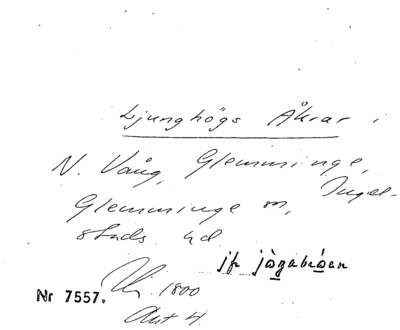 Ljunghögs Åkrar i
N. Vång, Glemminge,
Glemminge sn, Ingel-
stads hd.
jfr
Nr 7557. 1800
Akt 4.